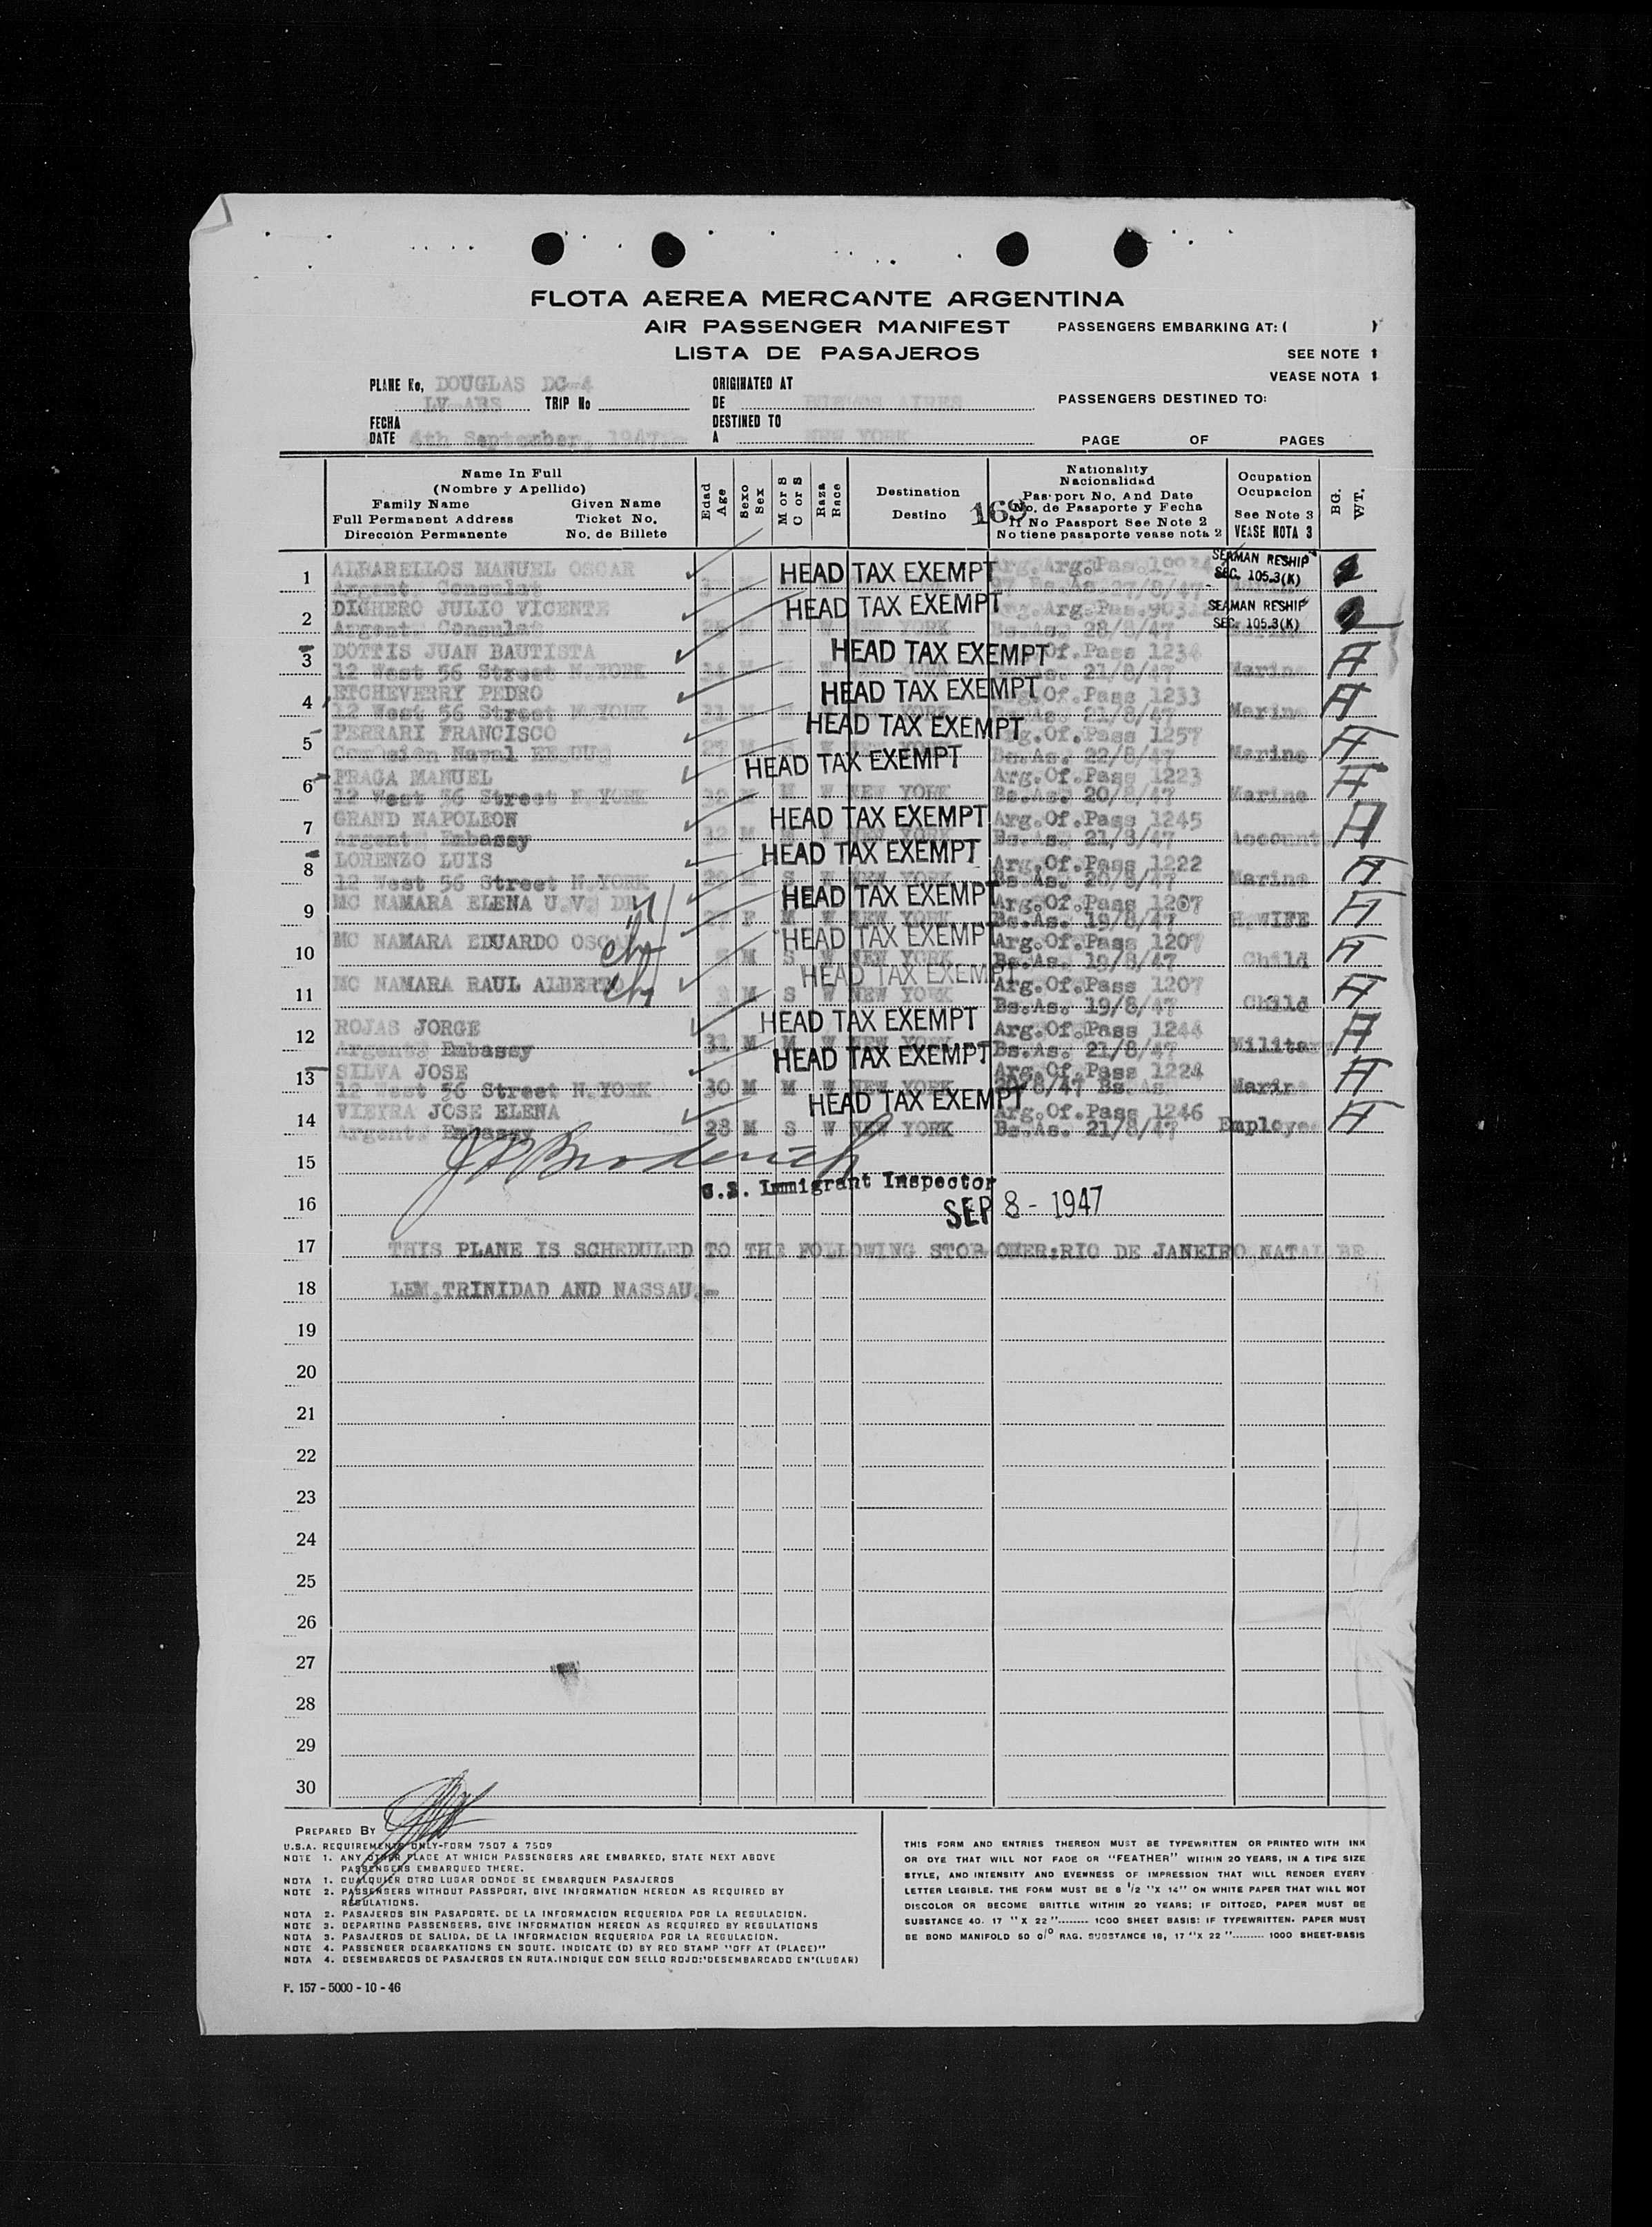 FLOTA AEREA MERCANTE ARGENTINA
AIR PASSENGER MANIFEST
PASSENGERS EMBARKING AT: ( )
LISTA DE PASAJEROS
SEE NOTE 1
VEASE NOTA 1
PLANE No, DOUGLAS DC-4
LV-ABS TRIP No
ORIGINATED AT
DE BUENOS AIRES
PASSENGERS DESTINED TO:
FECHA
DATE 4th September, 1947
DESTINED TO
A NEW YORK
PAGE OF PAGES
Name In Full
(Nombre y Apellido)
Family Name Given Name
Full Permanent Address Ticket No.
Dirección Permanente No. de Billete
Edad Age
Sexo Sex
M or S C or S
Raza Race
Destination
Destino
169
Nationality
Nacionalidad
Pas-port No. And Date
No. de Pasaporte y Fecha
If No Passport See Note 2
No tiene pasaporte vease nota 2
Ocupation
Ocupacion
See Note 3
VEASE NOTA 3
BG. WT.
1 ALBARELLOS MANUEL OSCAR HEAD TAX EXEMPT Arg.Arg.Pass. SEAMAN RESHIP
Argent. Consulat Bs.As. 27/8/47 SEC. 105.3(K)
2 DIGHERO JULIO VICENTE HEAD TAX EXEMPT SEAMAN RESHIP
Argent. Consulat 25 M W NEW YORK Bs.As. 28/8/47 SEC. 105.3(K)
3 DOTTIS JUAN BAUTISTA HEAD TAX EXEMPT Of.Pass 1234
12 West 56 Street N.YORK Bs.As. 21/8/47 Marine
4 ETCHEVERRY PEDRO HEAD TAX EXEMPT Of.Pass 1233
12 West 56 Street N.YORK 31 M Bs.As. 21/8/47 Marine
5 FERRARI FRANCISCO HEAD TAX EXEMPT Arg.Of.Pass 1257
Comision Naval EE.UU. 27 M S W Bs.As. 22/8/47 Marine
6 FRAGA MANUEL HEAD TAX EXEMPT Arg.Of.Pass 1223
12 West 56 Street N.YORK 32 M M W NEW YORK Bs.As. 20/8/47 Marine
7 GRAND NAPOLEON HEAD TAX EXEMPT Arg.Of.Pass 1245
Argent. Embassy M M W NEW YORK Bs.As. 21/8/47 Account.
8 LORENZO LUIS HEAD TAX EXEMPT Arg.Of.Pass 1222
12 West 56 Street N.YORK M S W NEW YORK Bs.As. 20/8/47 Marine
9 MC NAMARA ELENA U.V. DE HEAD TAX EXEMPT Arg.Of.Pass 1207
27 F M W NEW YORK Bs.As. 19/8/47 H.WIFE
10 MC NAMARA EDUARDO OSCAR HEAD TAX EXEMPT Arg.Of.Pass 1207
M S W NEW YORK Bs.As. 19/8/47 Child
11 MC NAMARA RAUL ALBERTO HEAD TAX EXEMPT Arg.Of.Pass 1207
M S W NEW YORK Bs.As. 19/8/47 Child
12 ROJAS JORGE HEAD TAX EXEMPT Arg.Of.Pass 1244
Argent. Embassy 31 M M W NEW YORK Bs.As. 21/8/47 Military
13 SILVA JOSE HEAD TAX EXEMPT Arg.Of.Pass 1224
12 West 56 Street N.YORK 30 M M W NEW YORK 20/8/47 Bs.As. Marine
14 VIEYRA JOSE ELENA HEAD TAX EXEMPT Arg.Of.Pass 1246
Argent. Embassy 28 M S W NEW YORK Bs.As. 21/8/47 Employee
15 Broderick
U.S. Immigrant Inspector
16 SEP 8 - 1947
17 THIS PLANE IS SCHEDULED TO THE FOLLOWING STOP OWER:RIO DE JANEIRO NATAL BE
18 LEM,TRINIDAD AND NASSAU.-
19
20
21
22
23
24
25
26
27
28
29
30
PREPARED BY
U.S.A. REQUIREMENTS ONLY-FORM 7507 & 7509
NOTE 1. ANY OTHER PLACE AT WHICH PASSENGERS ARE EMBARKED, STATE NEXT ABOVE
PASSENGERS EMBARQUED THERE.
NOTA 1. CUALQUIER OTRO LUGAR DONDE SE EMBARQUEN PASAJEROS
NOTE 2. PASSENGERS WITHOUT PASSPORT, GIVE INFORMATION HEREON AS REQUIRED BY
REGULATIONS.
NOTA 2. PASAJEROS SIN PASAPORTE. DE LA INFORMACION REQUERIDA POR LA REGULACION.
NOTE 3. DEPARTING PASSENGERS, GIVE INFORMATION HEREON AS REQUIRED BY REGULATIONS
NOTA 3. PASAJEROS DE SALIDA, DE LA INFORMACION REQUERIDA POR LA REGULACION.
NOTE 4. PASSENGER DEBARKATIONS EN SOUTE. INDICATE (D) BY RED STAMP "OFF AT (PLACE)"
NOTA 4. DESEMBARCOS DE PASAJEROS EN RUTA.INDIQUE CON SELLO ROJO:"DESEMBARCADO EN"(LUGAR)
THIS FORM AND ENTRIES THEREON MUST BE TYPEWRITTEN OR PRINTED WITH INK
OR DYE THAT WILL NOT FADE OR "FEATHER" WITHIN 20 YEARS, IN A TIPE SIZE
STYLE, AND INTENSITY AND EVENNESS OF IMPRESSION THAT WILL RENDER EYERY
LETTER LEGIBLE. THE FORM MUST BE 8 1/2 "X 14" ON WHITE PAPER THAT WILL NOT
DISCOLOR OR BECOME BRITTLE WITHIN 20 YEARS; IF DITTOED, PAPER MUST BE
SUBSTANCE 40. 17 " X 22 "........ 1000 SHEET BASIS: IF TYPEWRITTEN. PAPER MUST
BE BOND MANIFOLD 50 0/0 RAG. SUBSTANCE 16, 17 "X 22 "......... 1000 SHEET-BASIS
F. 157 - 5000 - 10 - 46